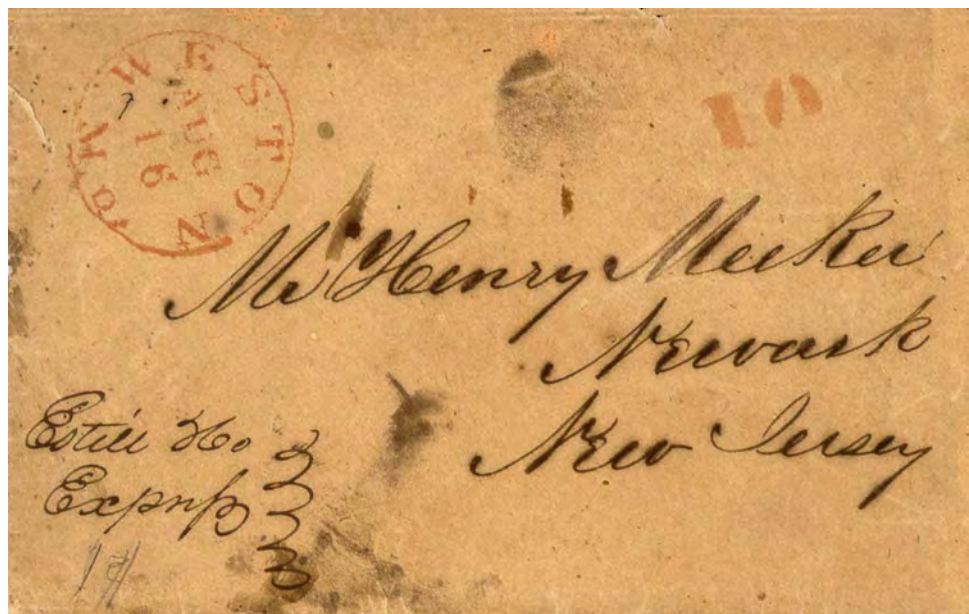 WESTON Mo
AUG
16
10
Mr Henry Meeker
Newark
New Jersey
Estill
Express